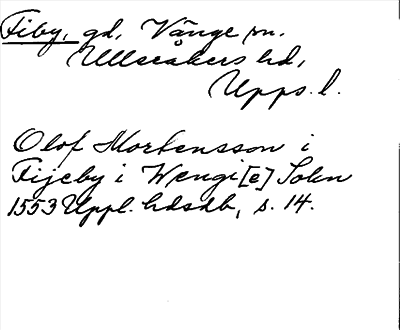 Fiby, gd, Vänge sn.
Ulleråkers hd,
Upps. l.
Olof Mortensson i
Fijeby i Wengi[e] Sokn
1553 Uppl. hdsdb, s. 14.